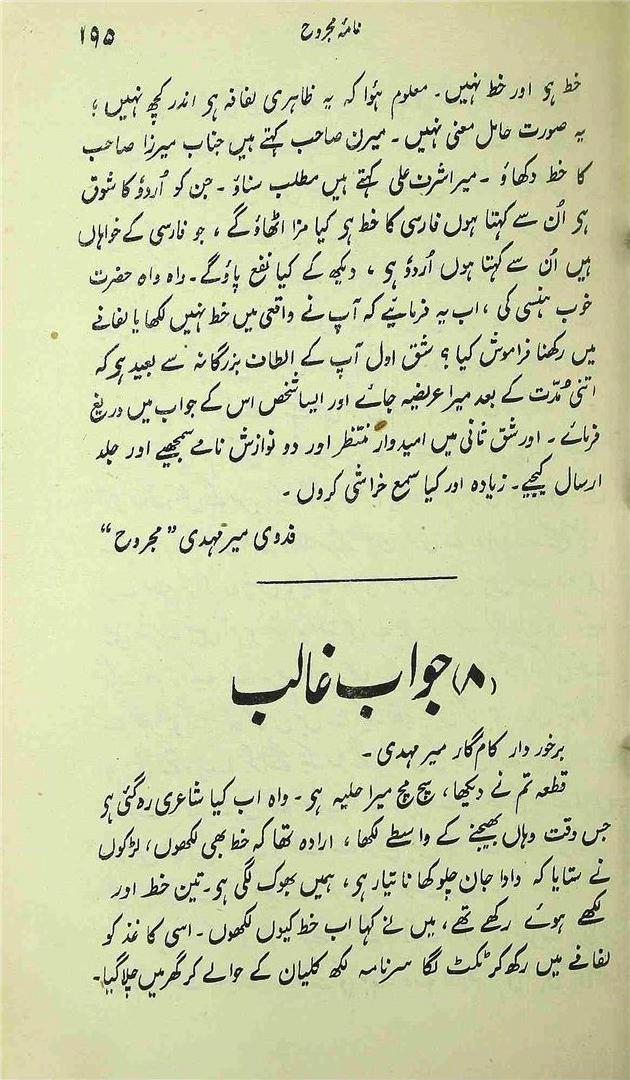 نامۂ مجروح
۱۹۵
خط ہو اور خط نہیں۔ معلوم ہؤا کہ یہ ظاہری لفافہ ہو اندر کچھ نہیں؛
یہ صورت حامل معنی نہیں۔ میرن صاحب کہتے ہیں جناب میرزا صاحب
کا خط دکھاؤ۔ میر اشرف علی کہتے ہیں مطلب سناؤ۔ جن کو اُردؤ کا شوق
ہو اُن سے کہتا ہوں فارسی کا خط ہو کیا مزا اٹھاؤ گے، جو فارسی کے خواہاں
ہیں اُن سے کہتا ہوں اُردؤ ہو، دیکھ کے کیا نفع پاؤگے۔ واہ واہ حضرت
خوب ہنسی کی، اب یہ فرمائیے کہ آپ نے واقعی میں خط نہیں لکھا یا لفافے
میں رکھنا فراموش کیا؟ شق اول آپ کے الطاف بزرگانہ سے بعید ہو کہ
اتنی مُدّت کے بعد میرا عریضہ جائے اور ایسا شخص اس کے جواب میں دریغ
فرمائے۔ اور شق ثانی میں امیدوار منتظر اور دو نوازش نامے سمجھیے اور جلد
ارسال کیجیے۔ زیادہ اور کیا سمع خراشی کروں۔
فدوی میر مہدی ”مجروح“
(۸) جواب غالب
برخوردار کام گار میر مہدی۔
قطعہ تم نے دیکھا، سچ مچ میرا حلیہ ہو۔ واہ اب کیا شاعری رہ گئی ہو
جس وقت وہاں بھیجنے کے واسطے لکھا، ارادہ تھا کہ خط بھی لکھوں، لڑکوں
نے ستایا کہ دادا جان چلو کھانا تیار ہو، ہمیں بھوک لگی ہو۔ تین خط اور
لکھے ہوئے رکھے تھے، میں نے کہا اب خط کیوں لکھوں۔ اسی کاغذ کو
لفافے میں رکھ کر ٹکٹ لگا سرنامہ لکھ کلیان کے حوالے کر گھر میں چلا گیا۔